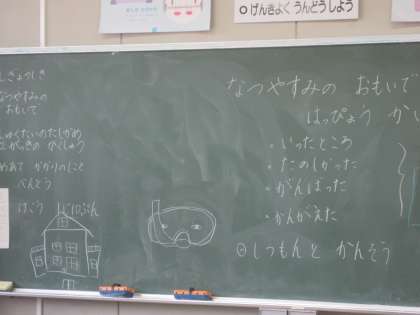 げんきよく うんどう しよう
しぎょうしき
なつやすみの
おもいで
しゅくだいのたしかめ
めあて かかりのしごと
べんとう
げこう
なつやすみの おもいで
はっぴょう かい
・いったところ
・たのしかった
・がんばった
・かんがえた
◎しつもんと かんそう